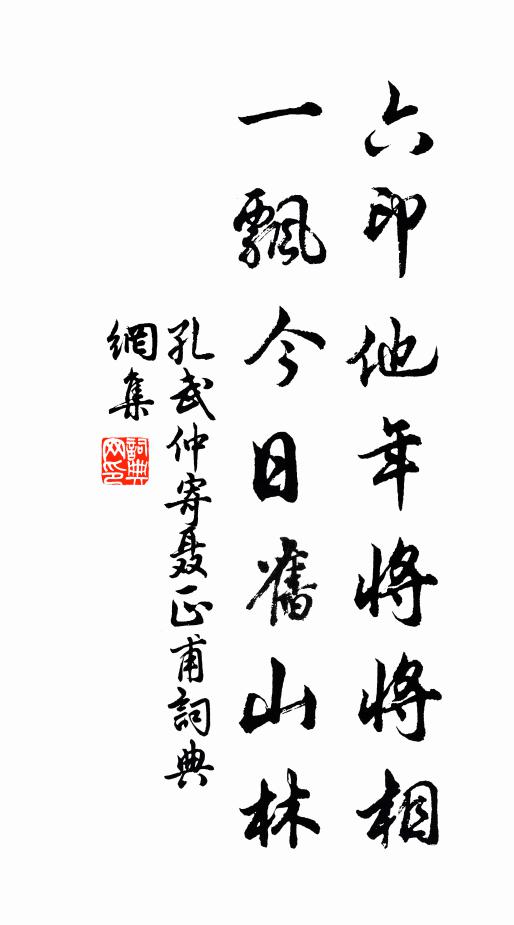 六印他年將將相
一飄今日舊山林
孔武仲寄聂正甫詞典
網集
詞典网印